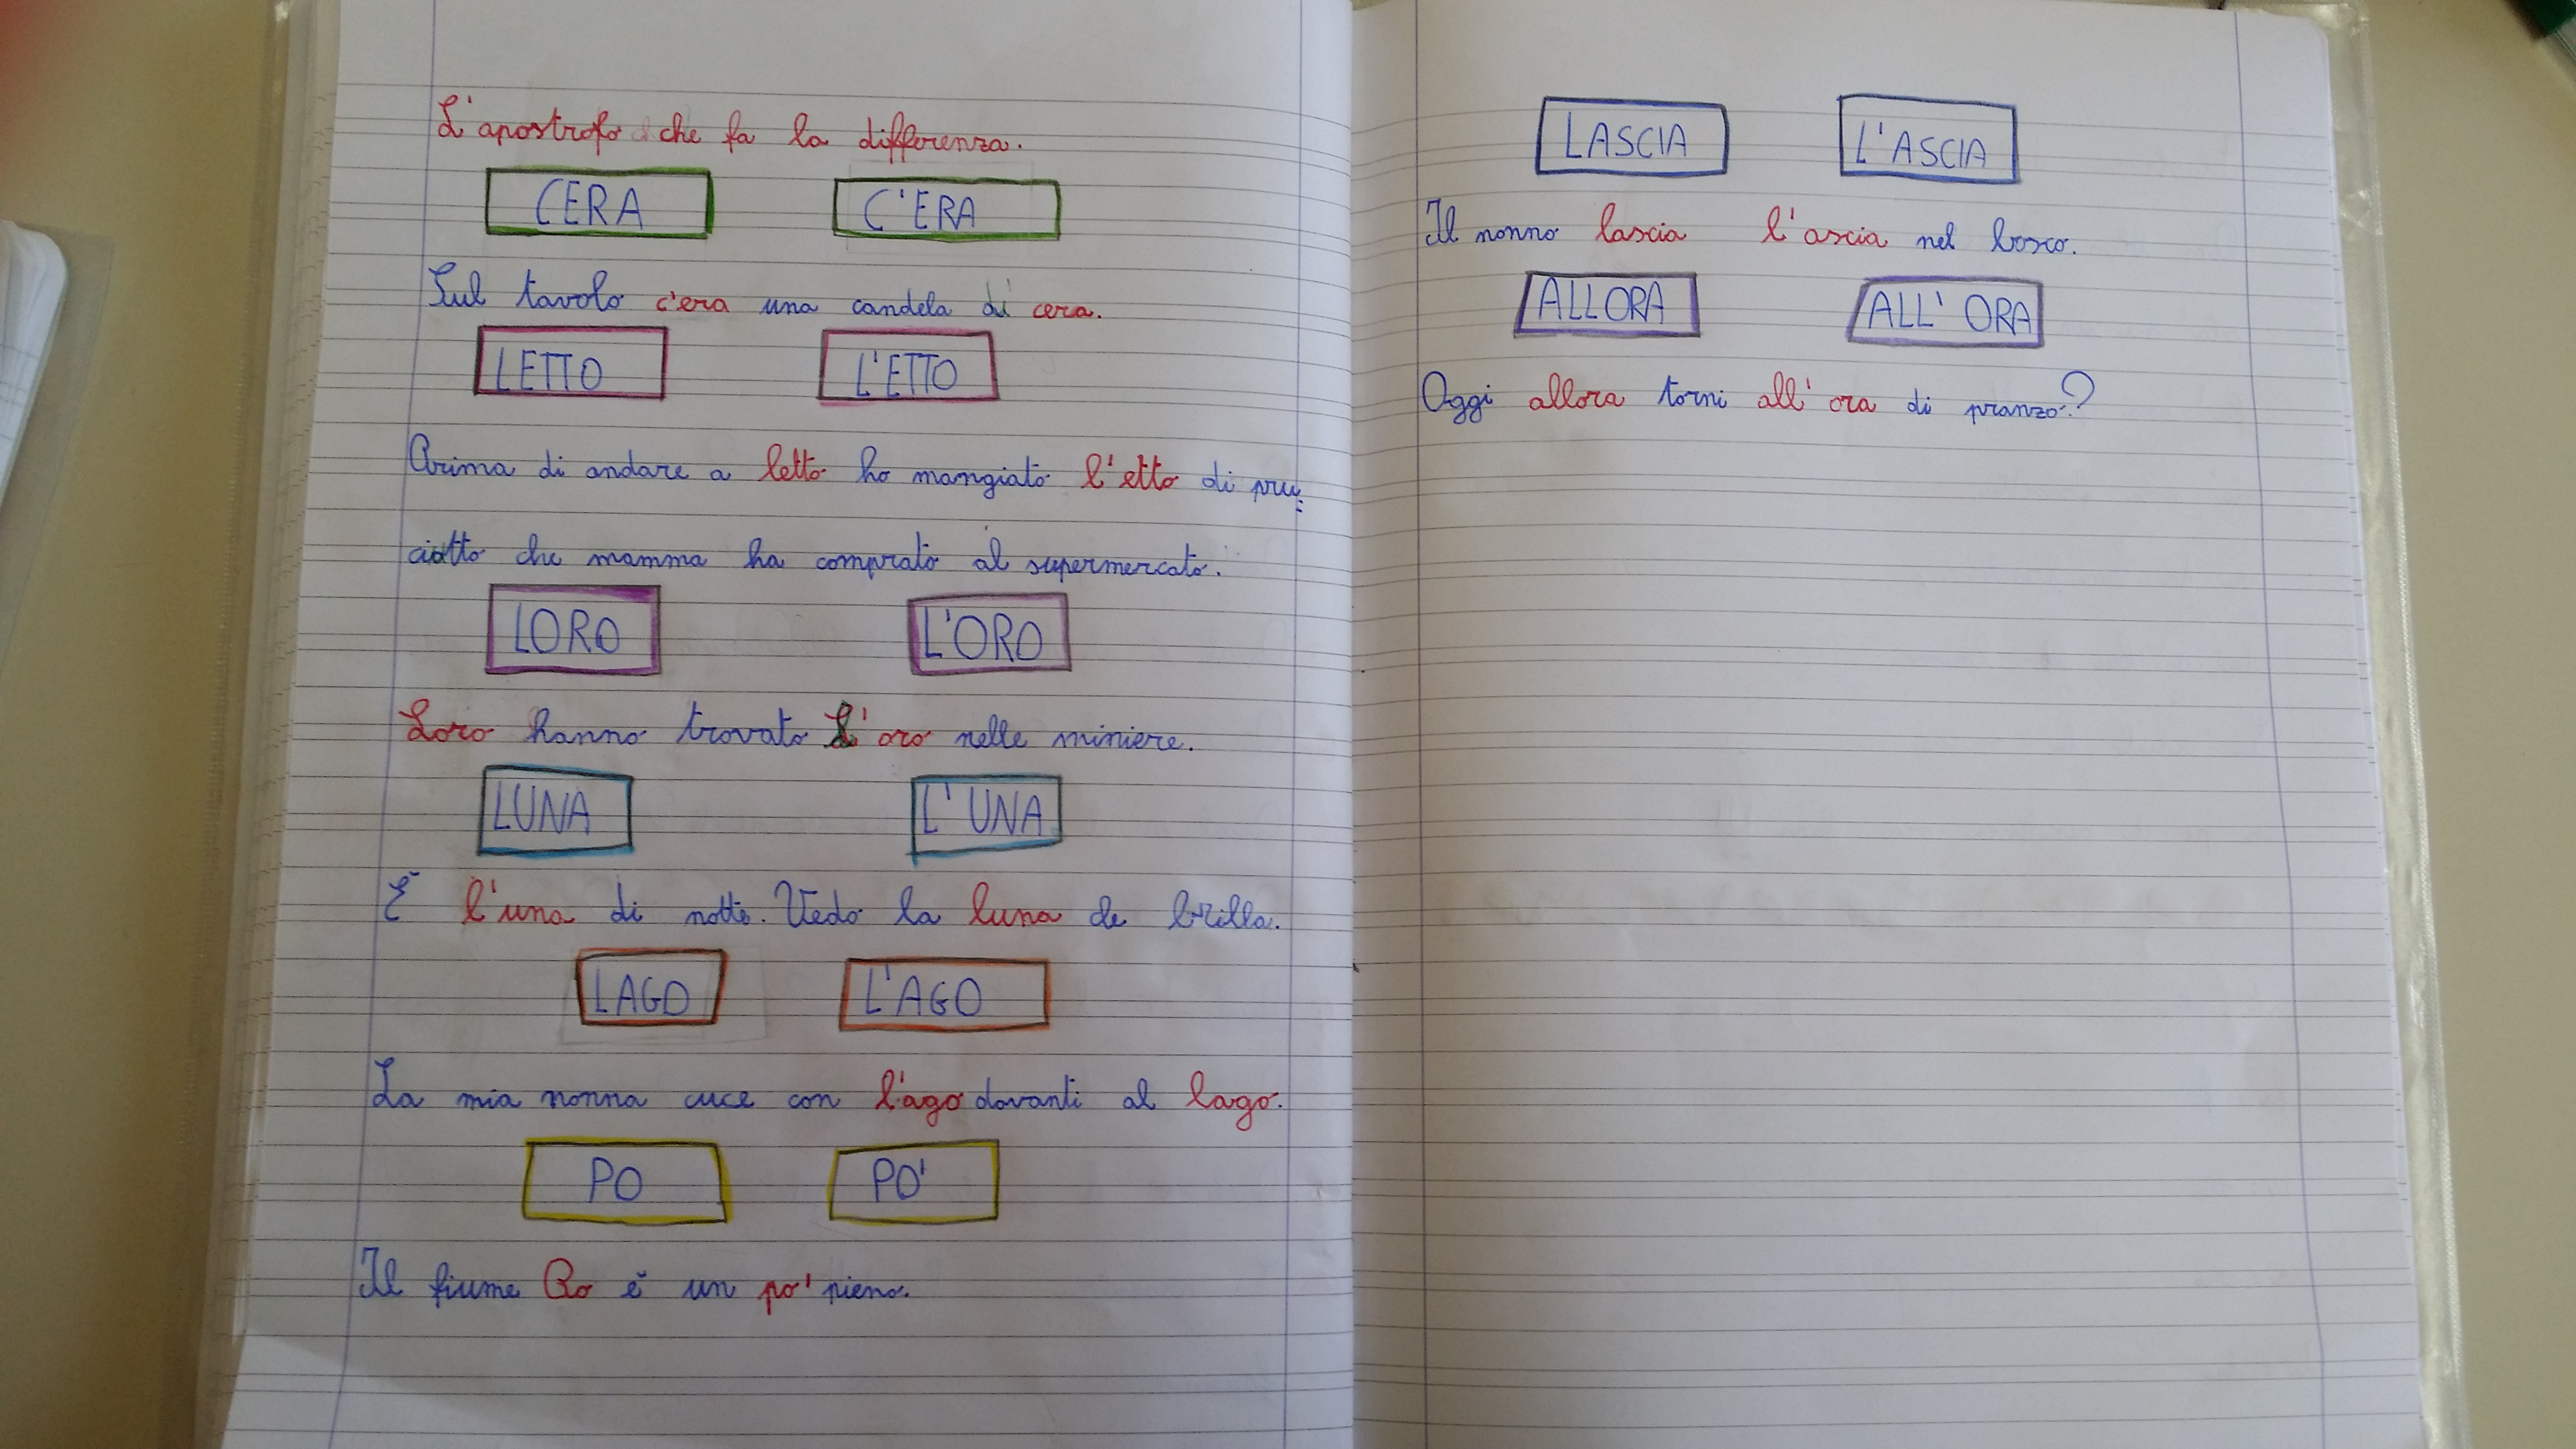 L'apostrofo che fa la differenza.
CERA C'ERA
Sul tavolo c'era una candela di cera.
LETTO L'ETTO
Prima di andare a letto ho mangiato l'etto di pru-
ciotto che mamma ha comprato al supermercato.
LORO L'ORO
Loro hanno trovato L'oro nelle miniere.
LUNA L'UNA
È l'una di notte. Vedo la luna che brilla.
LAGO L'AGO
La mia nonna cuce con l'ago davanti al lago.
PO PO'
Il fiume Po è un po' pieno.
LASCIA L'ASCIA
Il nonno lascia l'ascia nel bosco.
ALLORA ALL'ORA
Oggi allora torni all'ora di pranzo?